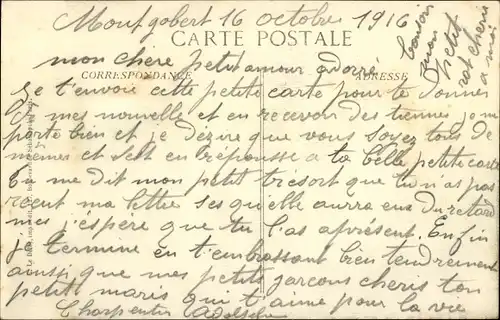 Montgobert 16 octobre 1916
CARTE POSTALE
mon chère petit amour adoré
CORRESPONDANCE
ADRESSE
Je t'envoie cette petite carte pour te donner
mes nouvelle et en recevoir des tiennes je me
porte bien et je désire que vous soyez tous de
mêmes et sest en réponsse a ta belle petite carte
Tu me dit mon petit trésort que tu n'as pas
recut ma lettre ses quelle aurra eus du retard
mes j'éspére que tu l'as aprésent. Enfin
je termine en t'embrassant bien tendrement
ainssi que mes petits garcons cheris ton
petit maris qui t'aime pour la vie
Charpentier Adolphe
bonsoir
mon
petit
rat cherie
a moi